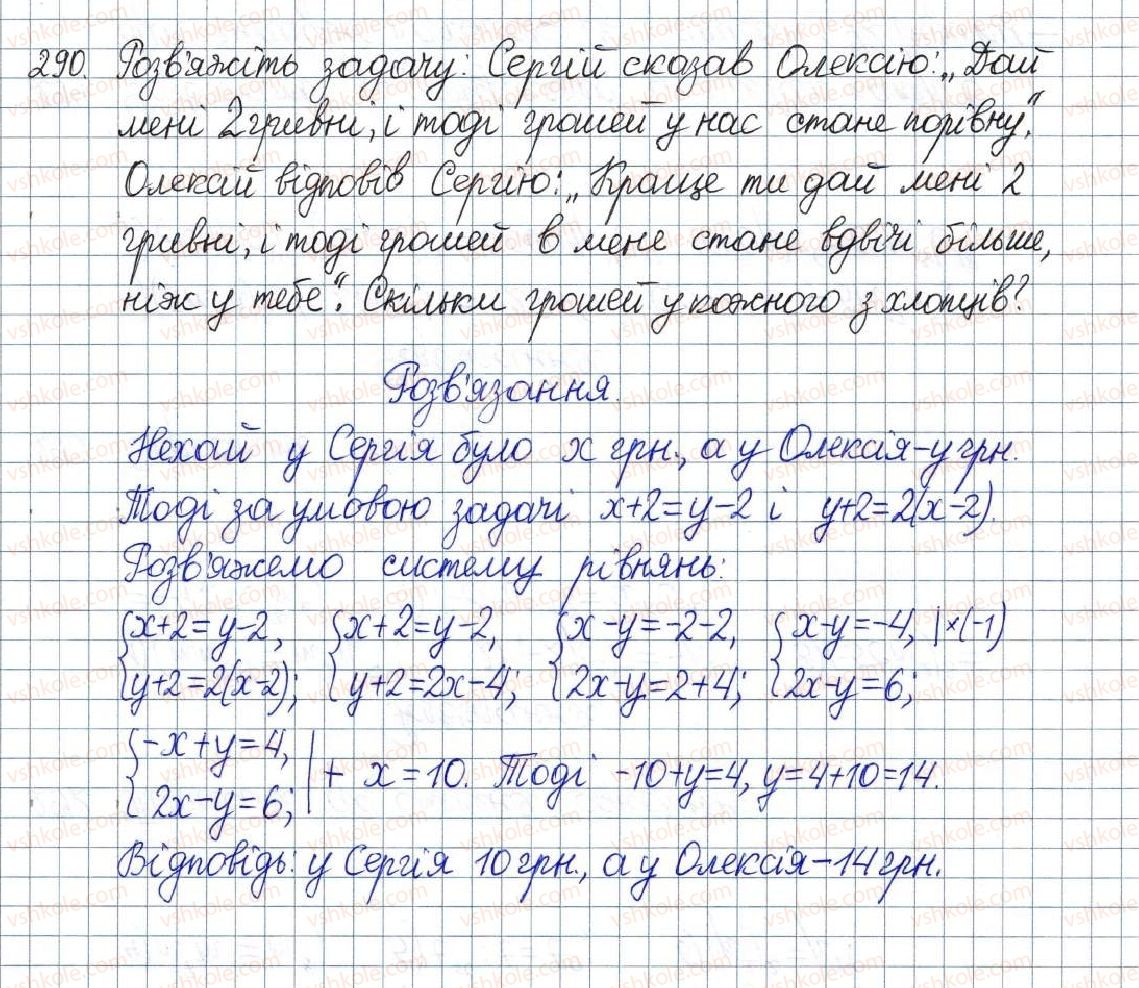 290. Розв'яжіть задачу: Сергій сказав Олексію: „Дай
мені 2 гривні, і тоді грошей у нас стане порівну“.
Олексій відповів Сергію: „Краще ти дай мені 2
гривні, і тоді грошей в мене стане вдвічі більше,
ніж у тебе“. Скільки грошей у кожного з хлопців?
Розв'язання.
Нехай у Сергія було x грн., а у Олексія – y грн.
Тоді за умовою задачі x+2=y-2 і y+2=2(x-2).
Розв'яжемо систему рівнянь:
{x+2=y-2, {x+2=y-2, {x-y=-2-2, {x-y=-4, |×(-1)
{y+2=2(x-2); {y+2=2x-4; {2x-y=2+4; {2x-y=6;
{-x+y=4,
{2x-y=6; |+ x=10. Тоді -10+y=4, y=4+10=14.
Відповідь: у Сергія 10 грн., а у Олексія – 14 грн.
vshkole.com